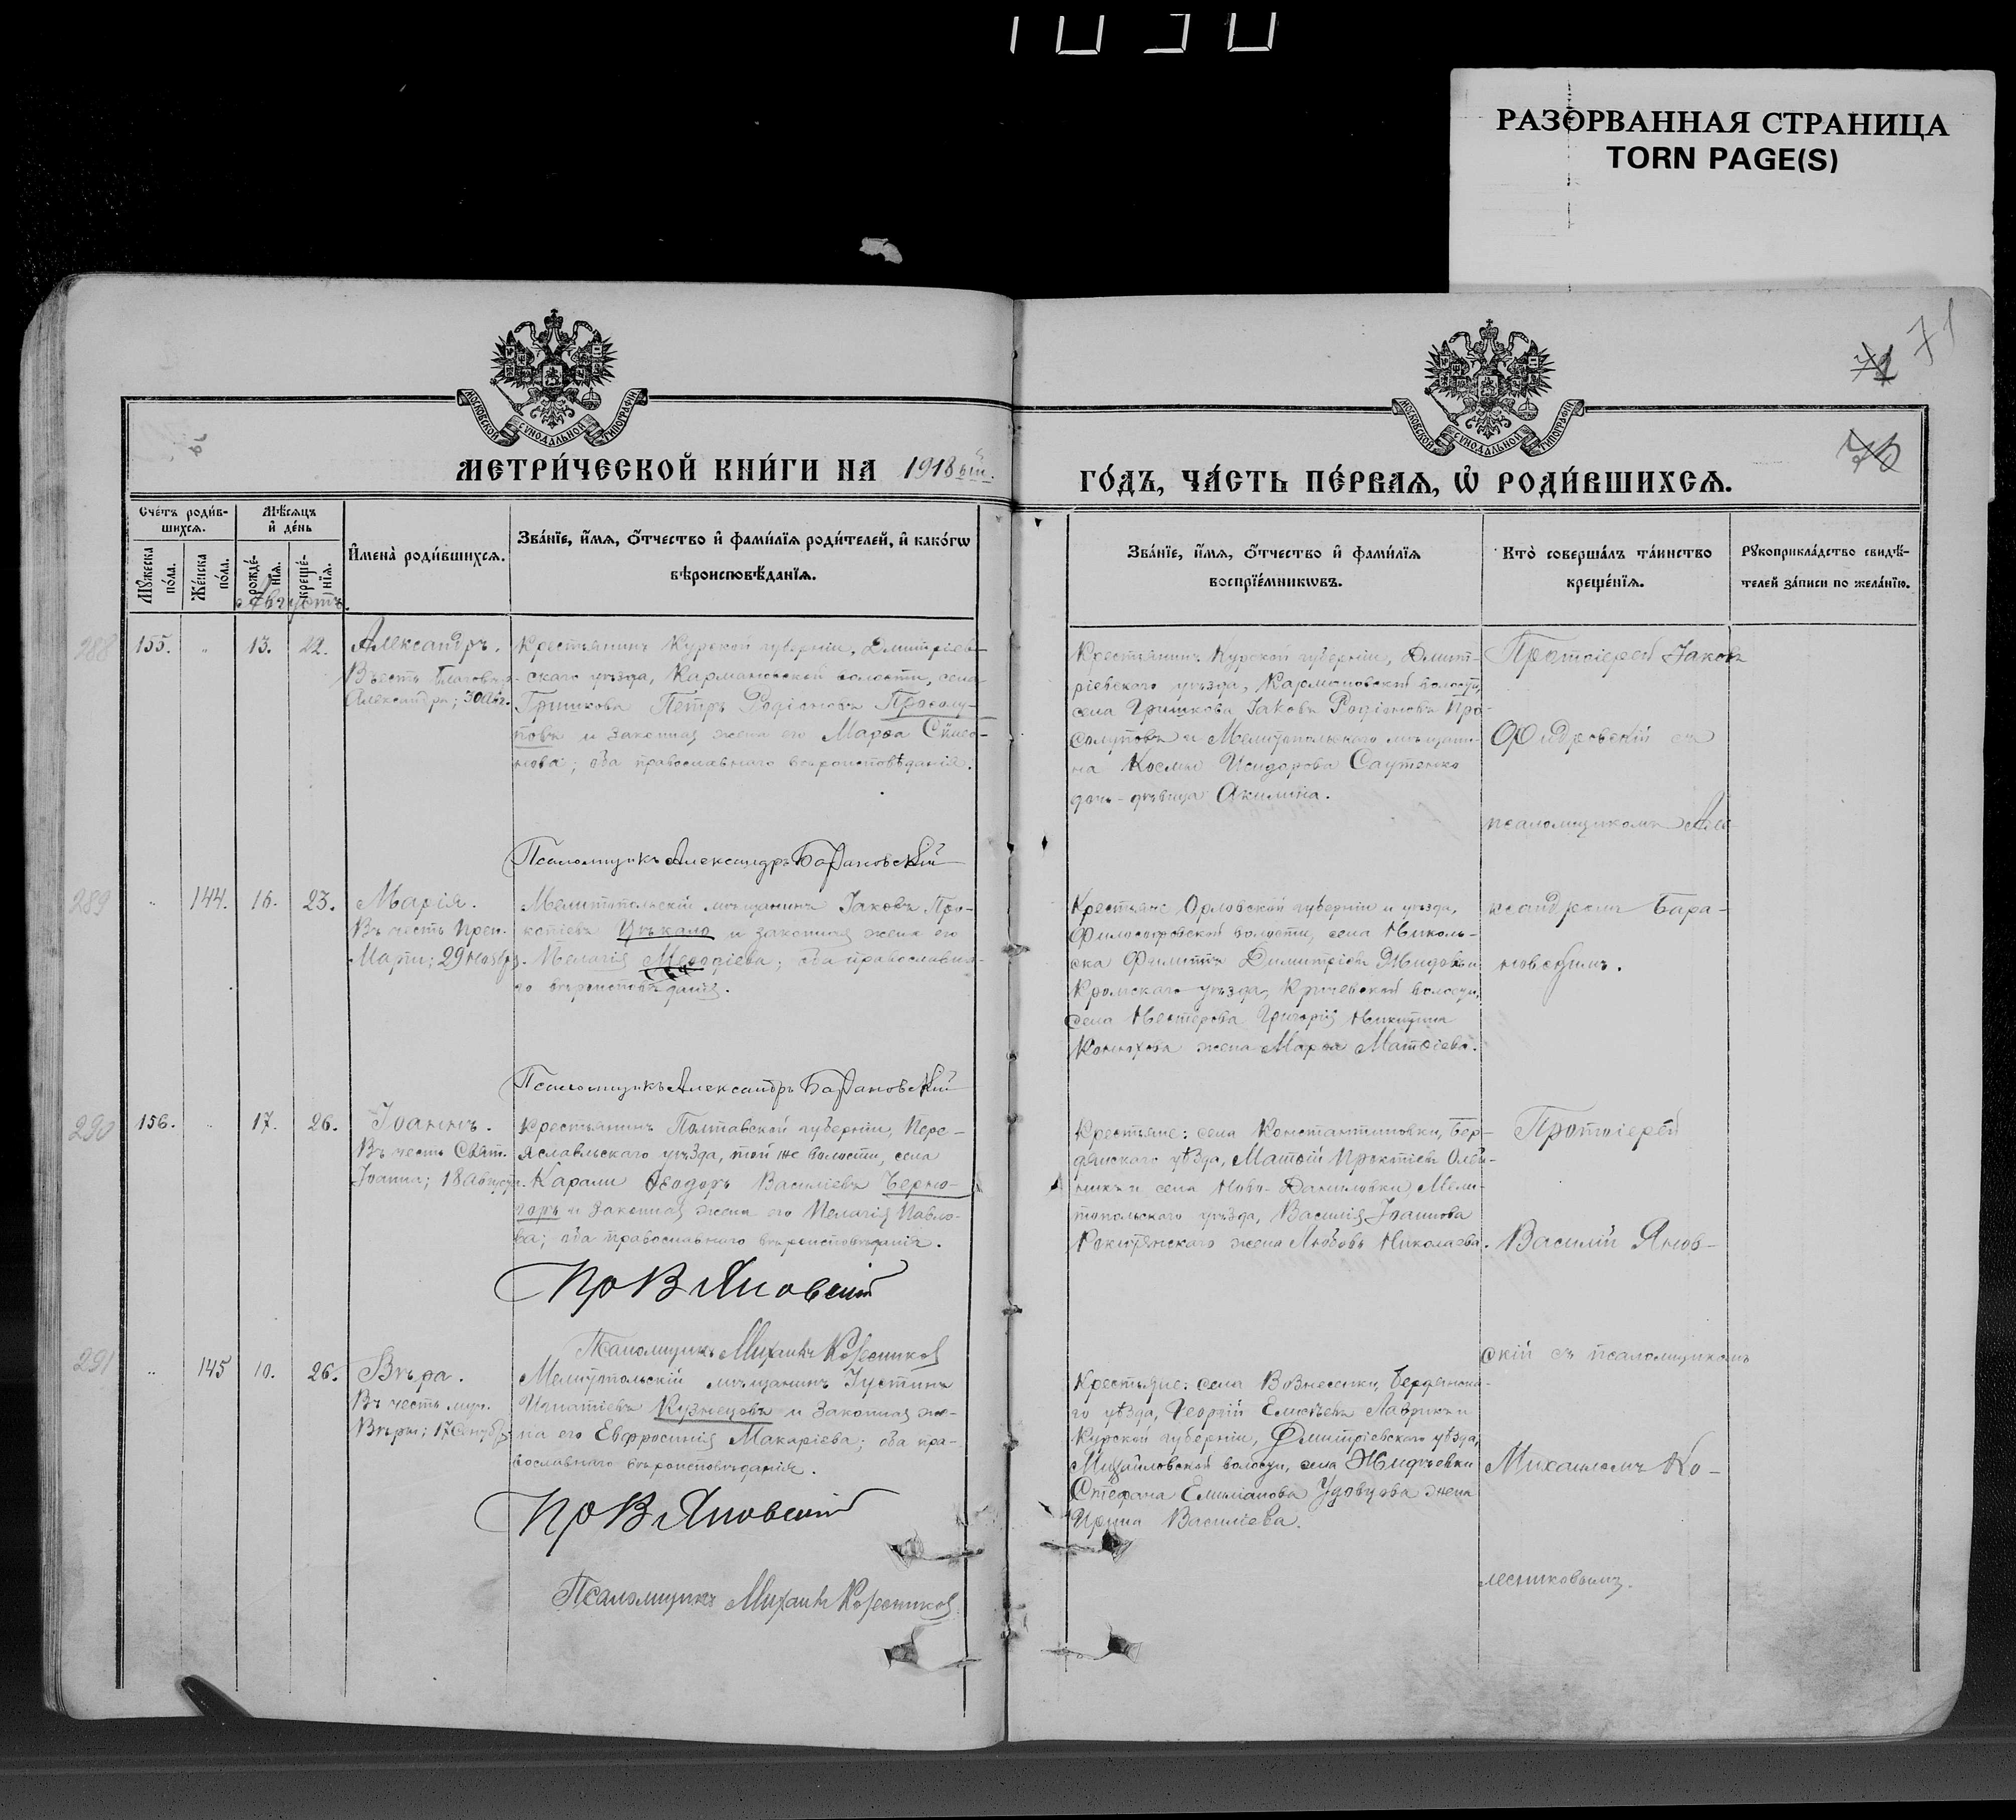 РАЗОРВАННАЯ СТРАНИЦА
TORN PAGE(S)
71
МОСКОВСКОЙ СѴНОДАЛЬНОЙ ТИПОГРАФІИ
МОСКОВСКОЙ СѴНОДАЛЬНОЙ ТИПОГРАФІИ
МЕТРИ́ЧЕСКОЙ КНИ́ГИ НА 1918 ый.
ГО́ДЪ, ЧА́СТЬ ПЕ́РВАѦ, Ѿ РОДИ́ВШИХСѦ.
Сче́тъ роди́в-
шихсѧ.
Мꙋжеска по́ла.
Же́нска по́ла.
Мѣ́сѧцъ и҆ де́нь
рожде́-нїѧ.
креще́-нїѧ.
И҆мена̀ роди́вшихсѧ.
Зва́нїе, и҆́мѧ, ѻ҆́тчество и҆ фами́лїѧ роди́телей, и҆ како́гѡ
вѣроисповѣ́данїѧ.
Зва́нїе, и҆́мѧ, ѻ҆́тчество и҆ фами́лїѧ
воспрїе́мникѡвъ.
Кто̀ соверша́лъ та́инство
креще́нїѧ.
Рꙋкоприкла́дство свидѣ́-
телей за́писи по жела́нїю.
Августъ.
288
155. " 13. 22.
Александръ.
Въ честь благовѣр.
Александра; 30 Авг.
Крестьянинъ Курской губерніи, Дмитріев-
скаго уѣзда, Кармановской волости, села
Гришкова Петръ Родіоновъ Просолу-
повъ и законная жена его Марѳа Симео-
нова; оба православнаго вѣроисповѣданія.
Псаломщикъ Александръ Барановскій
Крестьянинъ Курской губерніи, Дмит-
ріевскаго уѣзда, Кармановской волости,
села Гришкова Іаковъ Родіоновъ Про-
солуповъ и Мелитопольскаго мѣщани-
на Космы Исидорова Саутенко
дочь-дѣвица Акилина.
Протоіерей Іаковъ
псаломщикомъ Але-
289
" 144. 16. 23.
Марія.
Въ честь преп.
Маріи; 29 Октября.
Мелитопольскій мѣщанинъ Іаковъ Про-
копіевъ Цѣкало и законная жена его
Пелагія Меѳодіева; оба православна-
го вѣроисповѣданія.
Псаломщикъ Александръ Барановскій
Крестьяне Орловской губерніи и уѣзда,
волости, села Николь-
ска Филиппъ Димитріевъ и
Кромскаго уѣзда, волости,
села Нестерова Григорія Никитина
жена Марѳа Матѳіева.
ксандромъ Бара-
новскимъ.
290
156. " 17. 26.
Іоаннъ.
Въ честь Свят.
Іоанна; 18 Августа.
Крестьянинъ Полтавской губерніи, Пере-
яславльскаго уѣзда, той же волости, села
Карани Ѳеодоръ Василіевъ Черно-
горъ и законная жена его Пелагія Павло-
ва; оба православнаго вѣроисповѣданія.
Пр В Яновскій
Псаломщикъ Михаилъ Колесников
Крестьяне: села Константиновки, Бер-
дянскаго уѣзда, Матѳій Прокпіевъ Олей-
никъ и села Ново-Даниловки, Мели-
топольскаго уѣзда, Василія Іоаннова
Рокитянскаго жена Любовь Николаева.
Протоіерей
Василій Янов-
скій съ псаломщикомъ
291
" 145 10. 26.
Вѣра.
Въ честь муч.
Вѣры; 17 Сентября.
Мелитопольскій мѣщанинъ Іустинъ
Игнатіевъ Кузнецовъ и законная же-
на его Евфросинія Макаріева; оба пра-
вославнаго вѣроисповѣданія.
Пр В Яновскій
Псаломщикъ Михаилъ Колесников
Крестьяне: села Вознесенки, Бердянска-
го уѣзда, Георгій Елисѣевъ Лаврикъ и
Курской губерніи, Дмитріевскаго уѣзда,
Михайловской волости, села Жидѣевки
Стефана Емиліанова Удовцова жена
Ирина Василіева.
Михаиломъ Ко-
лесниковымъ.